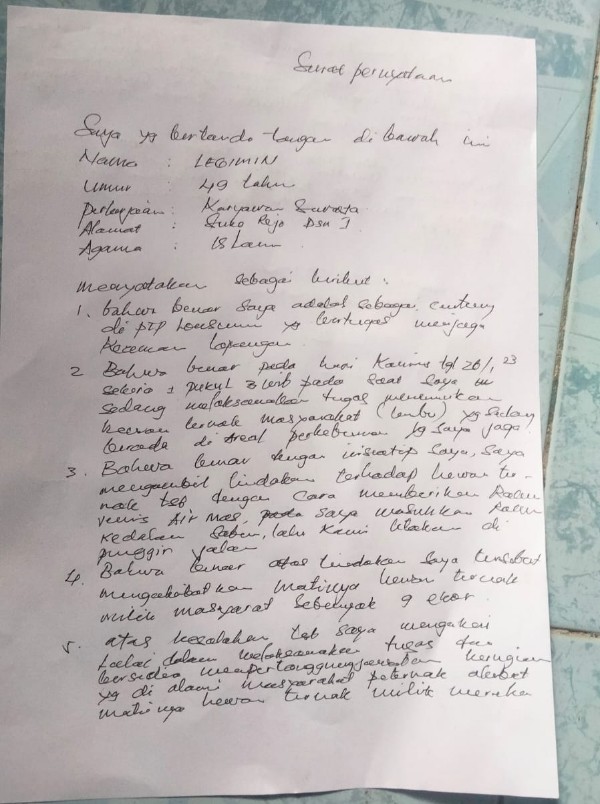 Surat pernyataan
Saya yg bertanda tangan di bawah ini
Nama : LEGIMIN
Umur : 49 tahun
Pekerjaan : Karyawan Swasta
Alamat : Suko Rejo Dsn I
Agama : ISLam
menyatakan sebagai berikut :
1. bahwa benar saya adalah sebagai centeng
di PTP Lonsum yg bertugas menjaga
Keamanan Lapangan
2 Bahwa benar pada hari Kamis tgl 26/1, 23
sekira ± pukul wib pada saat saya
sedang melaksanakan tugas menemukan
hewan ternak masyarakat (lembu) yg sedang
berada di areal perkebunan yg saya jaga.
3. Bahwa benar dengan inisiatip saya, saya
mengambil tindakan terhadap hewan ter-
nak tsb dengan cara memberikan Racun
jenis Air mas, pada saya masukkan Racun
kedalam sabun, lalu kami letakan di
pinggir jalan
4. Bahwa benar atas tindakan saya tersebut
mengakibatkan matinya hewan ternak
milik masyarat sebanyak 9 ekor.
5. atas kesalahan tsb saya mengakui
Lalai dalam melaksanakan tugas dan
bersedia mempertanggungjawabkan kerugian
yg di alami masyarakat peternak akibat
matinya hewan ternak milik mereka